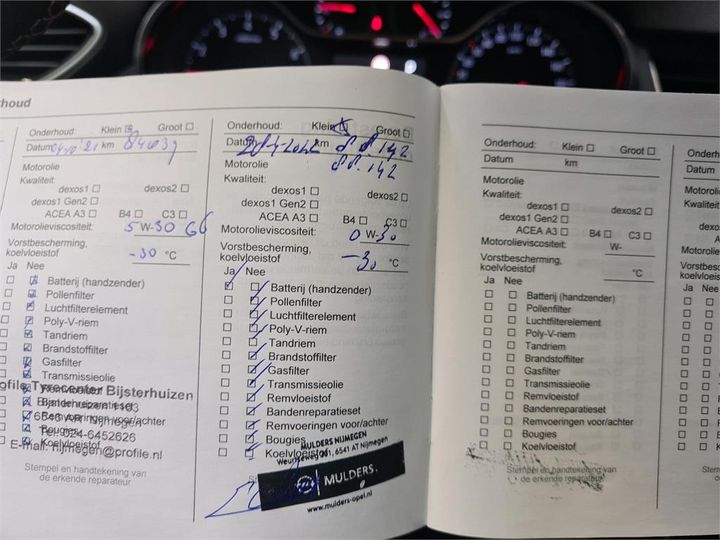 rhoud
Onderhoud: Klein Groot
Datum km 84039
Motorolie
Kwaliteit:
dexos1 dexos2
dexos1 Gen2
ACEA A3 B4 C3
Motorolieviscositeit: 5 W-30 G6
Vorstbescherming,
koelvloeistof -30 °C
Ja Nee
Batterij (handzender)
Pollenfilter
Luchtfilterelement
Poly-V-riem
Tandriem
Brandstoffilter
Gasfilter
Transmissieolie
Remvloeistof
Bandenreparatieset
Remvoeringen voor/achter
Bougies
Koelvloeistof
ofile Tyrecenter Bijsterhuizen
Nijmegen
Tel. 024-6452626
E-mail: nijmegen@profile.nl
Stempel en handtekening van
de erkende reparateur
Onderhoud: Klein Groot
Datum 28-4-2022 km 88.142
Motorolie 88.142
Kwaliteit:
dexos1 dexos2
dexos1 Gen2
ACEA A3 B4 C3
Motorolieviscositeit: 0 W-30
Vorstbescherming,
koelvloeistof -30 °C
Ja Nee
Batterij (handzender)
Pollenfilter
Luchtfilterelement
Poly-V-riem
Tandriem
Brandstoffilter
Gasfilter
Transmissieolie
Remvloeistof
Bandenreparatieset
Remvoeringen voor/achter
Bougies
Koelvloeistof
MULDERS NIJMEGEN
Weurtseweg, 6541 AT Nijmegen
MULDERS.
www.mulders-opel.nl
Onderhoud: Klein Groot
Datum km
Motorolie
Kwaliteit:
dexos1 dexos2
dexos1 Gen2
ACEA A3 B4 C3
Motorolieviscositeit: W-
Vorstbescherming,
koelvloeistof °C
Ja Nee
Batterij (handzender)
Pollenfilter
Luchtfilterelement
Poly-V-riem
Tandriem
Brandstoffilter
Gasfilter
Transmissieolie
Remvloeistof
Bandenreparatieset
Remvoeringen voor/achter
Bougies
Koelvloeistof
Stempel en handtekening van
de erkende reparateur
Onderh
Datum
Motorolie
Kwaliteit:
de
dex
A
Motorolie
Vorstbesc
koelvloeis
Ja Nee